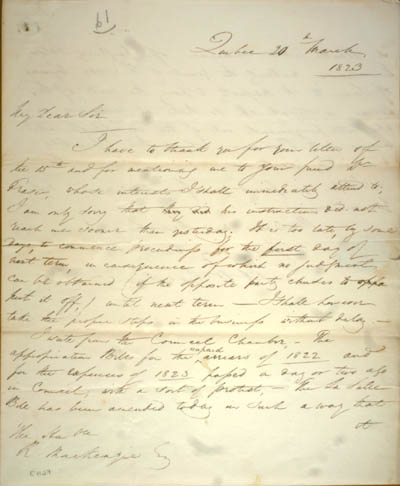 19
Quebec 20th March
1823
My Dear Sir
I have to thank you for your letter of
the 15th and for mentioning me to your friend Mr
Fraser, whose interests I shall immediately attend to;
I am only sorry that his instructions did not
reach me sooner than yesterday. It is too late by some
days to commence proceedings for the first day of
next term, in consequence of which no judgment
can be obtained (if the opposite party chuses to
put it off,) until next term — I shall however
take the proper steps in the business without delay —
I write from the Council Chamber, — The
appropriation Bills for the unpaid arrears of 1822 and
for the expenses of 1823 passed a day or two ago
in Council, with a sort of protest, — The La Salle
Bill has been amended today in such a way that
it
The Hon
R MacKenzie Esq